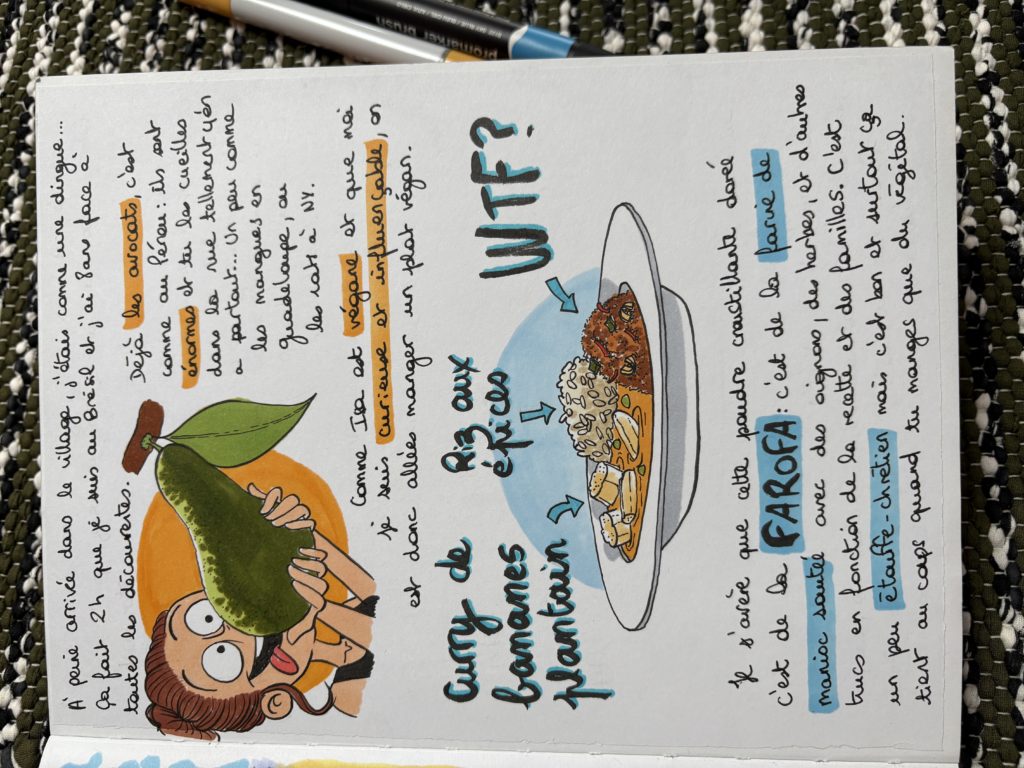 À peine arrivée dans le village, j'étais comme une dingue...
Ça fait 2h que je suis au Brésil et j'ai 8ans face à
toutes les découvertes.
Déjà les avocats, c'est
comme au Pérou : ils sont
énormes et tu les cueilles
dans la rue tellement y en
a partout... Un peu comme
les mangues en
guadeloupe, ou
les rats à NY.
Comme Isa est végane et que moi
je suis curieuse et influençable, on
est donc allées manger un plat végan.
Curry de
bananes
plantain
Riz aux
épices
WTF?
Je s'avère que cette poudre croustillante doré
c'est de la FAROFA : c'est de la farine de
manioc sauté avec des oignons, des herbes, et d'autres
trucs en fonction de la recette et des familles. C'est
un peu étouffe-chrétien mais c'est bon et surtout ça
tient au corps quand tu manges que du végétal.
promarker brush